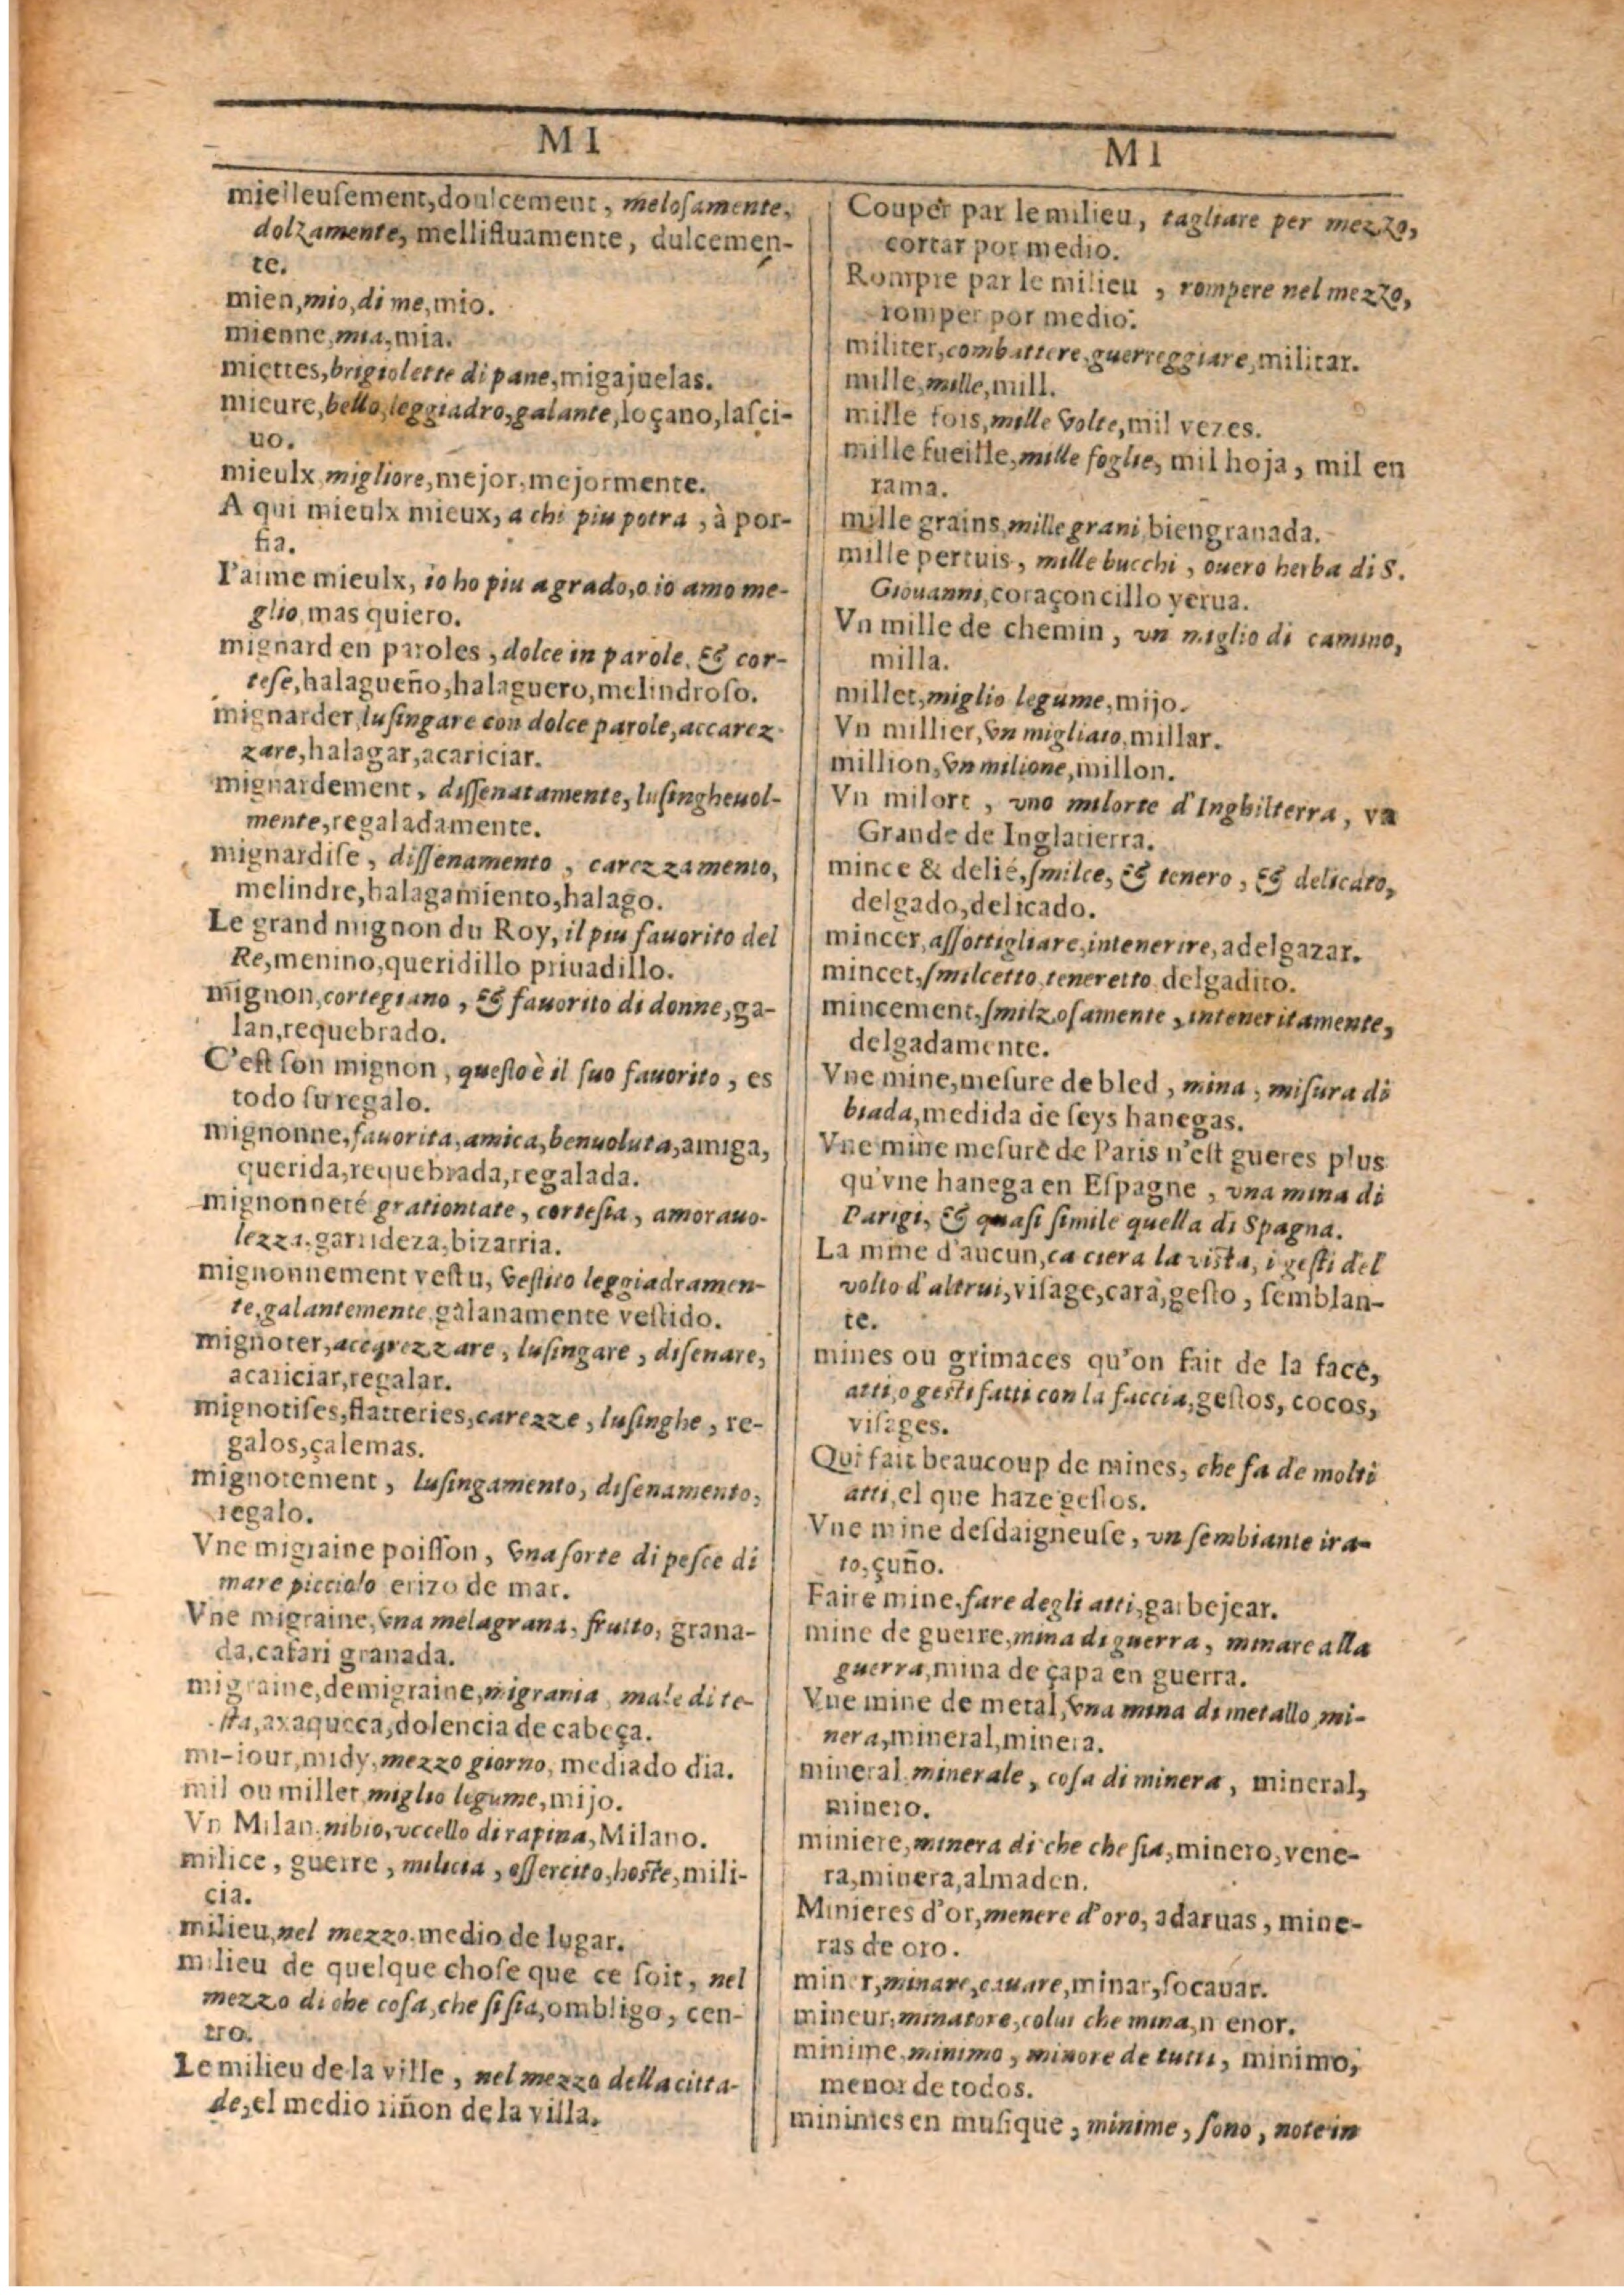 MI
mielleuſement, doulcement, meloſamente,
dolzamente, mellifluamente, dulcemen-
te.
mien, mio, di me, mio.
mienne, mia, mia.
miettes, brigiolette di pane, migajuelas.
mieure, bello, leggiadro, galante, loçano, laſci-
uo.
mieulx, migliore, mejor, mejormente.
A qui mieulx mieux, a chi piu potra, à por-
fia.
I'aime mieulx, io ho piu a grado, o io amo me-
glio, mas quiero.
mignard en paroles, dolce in parole, & cor-
teſe, halagueño, halaguero, melindroſo.
mignarder, luſingare con dolce parole, accarez-
zare, halagar, acariciar.
mignardement, diſſenatamente, luſingheuol-
mente, regaladamente.
mignardiſe, diſſenamento, carezzamento,
melindre, halagamiento, halago.
Le grand mignon du Roy, il piu fauorito del
Re, menino, queridillo priuadillo.
mignon, cortegiano, & fauorito di donne, ga-
lan, requebrado.
C'eſt ſon mignon, queſto è il ſuo fauorito, es
todo ſu regalo.
mignonne, fauorita, amica, benuoluta, amiga,
querida, requebrada, regalada.
mignonneté grationtate, corteſia, amorauo-
lezza, garrideza, bizarria.
mignonnement veſtu, veſtito leggiadramen-
te, galantemente, galanamente veſtido.
mignoter, acegrezzare, luſingare, diſenare,
acariciar, regalar.
mignotiſes, flatteries, carezze, luſinghe, re-
galos, çalemas.
mignotement, luſingamento, diſenamento,
regalo.
Vne migraine poiſſon, vna ſorte di peſce di
mare picciolo erizo de mar.
Vne migraine, vna melagrana, frutto, grana-
da, cafari granada.
migraine, demigraine, migrania, male di te-
ſta, axaqueca, dolencia de cabeça.
mi-iour, midy, mezzo giorno, mediado dia.
mil ou millet, miglio legume, mijo.
Vn Milan, nibio, vccello di rapina, Milano.
milice, guerre, milicia, eſſercito, hoſte, mili-
cia.
milieu, nel mezzo, medio de lugar.
milieu de quelque choſe que ce ſoit, nel
mezzo di che coſa, che ſi ſia, ombligo, cen-
tro.
Le milieu de la ville, nel mezzo della citta-
de, el medio riñon de la villa.
MI
Couper par le milieu, tagliare per mezzo,
cortar por medio.
Rompre par le milieu, rompere nel mezzo,
romper por medio.
militer, combattere, guerreggiare, militar.
mille, mille, mill.
mille fois, mille volte, mil vezes.
mille fueille, mille foglie, mil hoja, mil en
rama.
mille grains, mille grani, biengranada.
mille pertuis, mille bucchi, ouero herba di S.
Giouanni, coraçoncillo yerua.
Vn mille de chemin, vn miglio di camino,
milla.
millet, miglio legume, mijo.
Vn millier, vn migliaio, millar.
million, vn milione, millon.
Vn milort, vno milorte d'Inghilterra, vn
Grande de Inglatierra.
mince & delié, ſmilce, & tenero, & delicato,
delgado, delicado.
mincer, aſſottigliare, intenerire, adelgazar.
mincet, ſmilcetto, teneretto, delgadito.
mincement, ſmilzoſamente, inteneritamente,
delgadamente.
Vne mine, meſure de bled, mina, miſura di
biada, medida de ſeys hanegas.
Vne mine meſure de Paris n'eſt gueres plus
qu'vne hanega en Eſpagne, vna mina di
Parigi, & quaſi ſimile quella di Spagna.
La mine d'aucun, ca ciera la viſta, i geſti del
volto d'altrui, viſage, cara, geſto, ſemblan-
te.
mines ou grimaces qu'on fait de la face,
atti, o geſti fatti con la faccia, geſtos, cocos,
viſages.
Qui fait beaucoup de mines, che fa de molti
atti, el que haze geſtos.
Vne mine deſdaigneuſe, vn ſembiante ira-
to, çuño.
Faire mine, fare degli atti, garbejear.
mine de guerre, mina di guerra, minare alla
guerra, mina de çapa en guerra.
Vne mine de metal, vna mina di metallo, mi-
nera, mineral, minera.
mineral, minerale, coſa di minera, mineral,
minero.
miniere, minera di che che ſia, minero, vene-
ra, minera, almaden.
Minieres d'or, menere d'oro, adaruas, mine-
ras de oro.
miner, minare, cauare, minar, ſocauar.
mineur, minatore, colui che mina, menor.
minime, minimo, minore de tutti, minimo,
menor de todos.
minimes en muſique, minime, ſono, note in